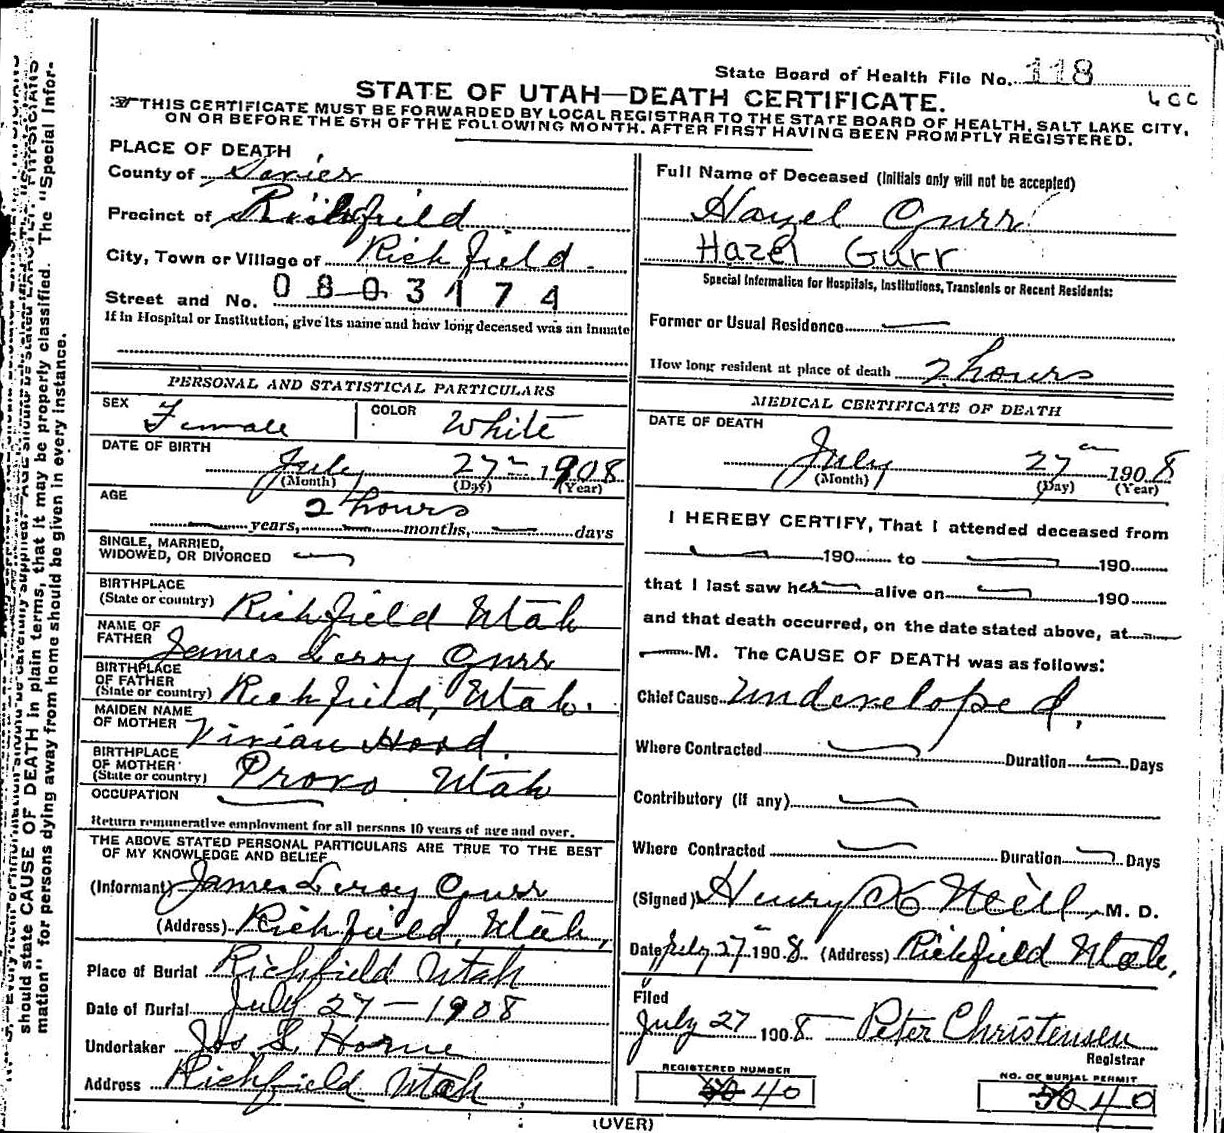 State Board of Health File No. 118
STATE OF UTAH—DEATH CERTIFICATE.
THIS CERTIFICATE MUST BE FORWARDED BY LOCAL REGISTRAR TO THE STATE BOARD OF HEALTH, SALT LAKE CITY,
ON OR BEFORE THE 5TH OF THE FOLLOWING MONTH, AFTER FIRST HAVING BEEN PROMPTLY REGISTERED.
PLACE OF DEATH
County of Sevier
Precinct of Richfield
City, Town or Village of Richfield.
Street and No. 0803174
If in Hospital or Institution, give its name and how long deceased was an inmate
Full Name of Deceased (Initials only will not be accepted)
Hazel Gurr
Hazel Gurr
Special Information for Hospitals, Institutions, Transients or Recent Residents:
Former or Usual Residence —
How long resident at place of death 2 hours
PERSONAL AND STATISTICAL PARTICULARS
SEX Female COLOR White
DATE OF BIRTH
July 27 1908
(Month) (Day) (Year)
AGE 2 hours
— years, — months, — days
SINGLE, MARRIED,
WIDOWED, OR DIVORCED —
BIRTHPLACE
(State or country) Richfield Utah
NAME OF
FATHER James Leroy Gurr
BIRTHPLACE
OF FATHER
(State or country) Richfield, Utah.
MAIDEN NAME
OF MOTHER Vivian Hood.
BIRTHPLACE
OF MOTHER
(State or country) Provo Utah
OCCUPATION —
Return remunerative employment for all persons 10 years of age and over.
THE ABOVE STATED PERSONAL PARTICULARS ARE TRUE TO THE BEST
OF MY KNOWLEDGE AND BELIEF
(Informant) James Leroy Gurr
(Address) Richfield, Utah,
Place of Burial Richfield Utah
Date of Burial July 27—1908
Undertaker Jos S. Horne
Address Richfield Utah
MEDICAL CERTIFICATE OF DEATH
DATE OF DEATH
July 27 1908
(Month) (Day) (Year)
I HEREBY CERTIFY, That I attended deceased from
— 190 to — 190
that I last saw her — alive on — 190
and that death occurred, on the date stated above, at —
— M. The CAUSE OF DEATH was as follows:
Chief Cause Undeveloped,
Where Contracted — Duration — Days
Contributory (if any) —
Where Contracted — Duration — Days
(Signed) Henry Neill, M. D.
Date July 27 1908. (Address) Richfield Utah,
Filed
July 27 1908 Peter Christensen
Registrar
REGISTERED NUMBER
40
NO. OF BURIAL PERMIT
40
(OVER)
should state CAUSE OF DEATH in plain terms, that it may be properly classified. The "Special Infor-
mation" for persons dying away from home should be given in every instance.